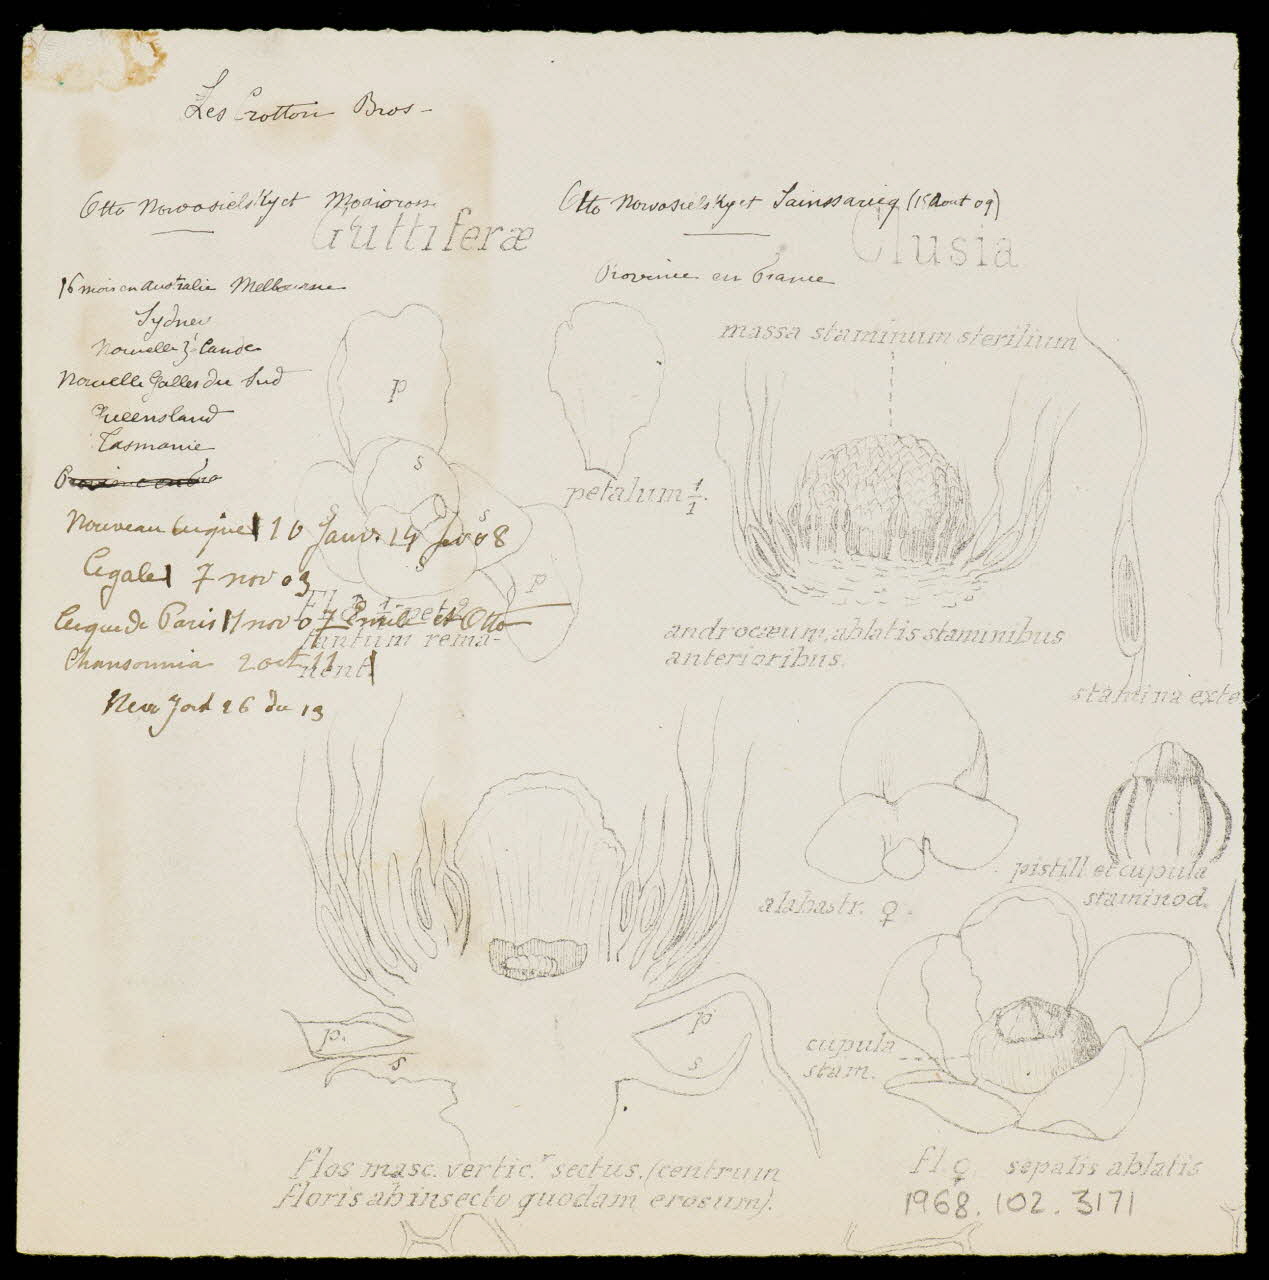 Les Crotton Bros -
Otto Nowosielsky et
Otto Nowosielsky et Sainssarieg (15 Aout 09)
Guttiferæ
Clusia
Province en France
16 mois en Australie Melbourne
Sydney
Nouvelle Zlande
Nouvelle Galles du Sud
Queensland
Tasmanie
massa staminum sterilium
p
s
petalum 1/1.
Nouveau Cirque 10 Janv. 14 fev 08
s
s
s
p
Cigale 7 nov 03
Cirque de Paris 17 nov 07 Emile et Otto
tantum rema-
nent
Chansonnia 2 oct 11
New York 26 du 13
androcæum, ablatis staminibus
anterioribus.
stamina exte
alabastr. ♀.
pistill et cupula
staminod.
p.
s
p
s
cupula
stam.
flos masc. vertic. sectus. (centrum
floris ab insecto quodam erosum).
fl. ♀ sepalis ablatis
1968.102.3171